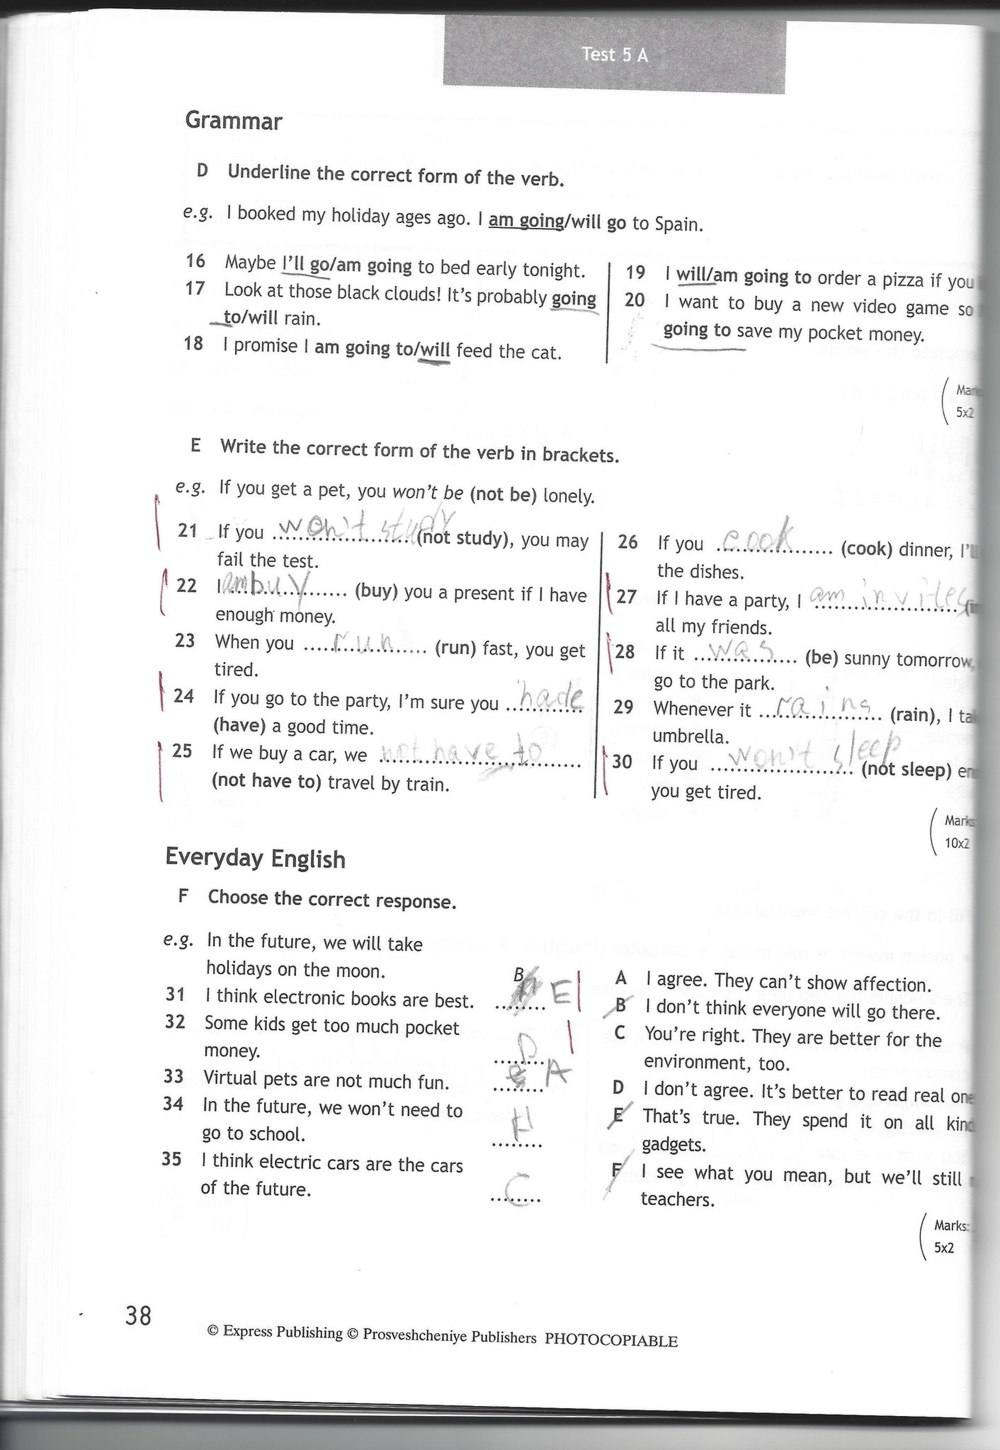 Test 5 A
Grammar
D Underline the correct form of the verb.
e.g. I booked my holiday ages ago. I am going/will go to Spain.
16 Maybe I'll go/am going to bed early tonight.
17 Look at those black clouds! It's probably going
to/will rain.
18 I promise I am going to/will feed the cat.
19 I will/am going to order a pizza if you
20 I want to buy a new video game so
going to save my pocket money.
5x2
E Write the correct form of the verb in brackets.
e.g. If you get a pet, you won't be (not be) lonely.
21 If you won't study (not study), you may
fail the test.
22 I am buy (buy) you a present if I have
enough money.
23 When you run (run) fast, you get
tired.
24 If you go to the party, I'm sure you hade
(have) a good time.
25 If we buy a car, we not have to
(not have to) travel by train.
26 If you cook (cook) dinner, I'll
the dishes.
27 If I have a party, I am invites
all my friends.
28 If it was (be) sunny tomorrow,
go to the park.
29 Whenever it rains (rain), I
umbrella.
30 If you won't sleep (not sleep)
you get tired.
Marks
10x2
Everyday English
F Choose the correct response.
e.g. In the future, we will take
holidays on the moon. B
31 I think electronic books are best. E
32 Some kids get too much pocket
money. D
33 Virtual pets are not much fun. A
34 In the future, we won't need to
go to school. F
35 I think electric cars are the cars
of the future. C
A I agree. They can't show affection.
B I don't think everyone will go there.
C You're right. They are better for the
environment, too.
D I don't agree. It's better to read real
E That's true. They spend it on all
gadgets.
F I see what you mean, but we'll still
teachers.
Marks:
5x2
38
© Express Publishing © Prosveshcheniye Publishers PHOTOCOPIABLE